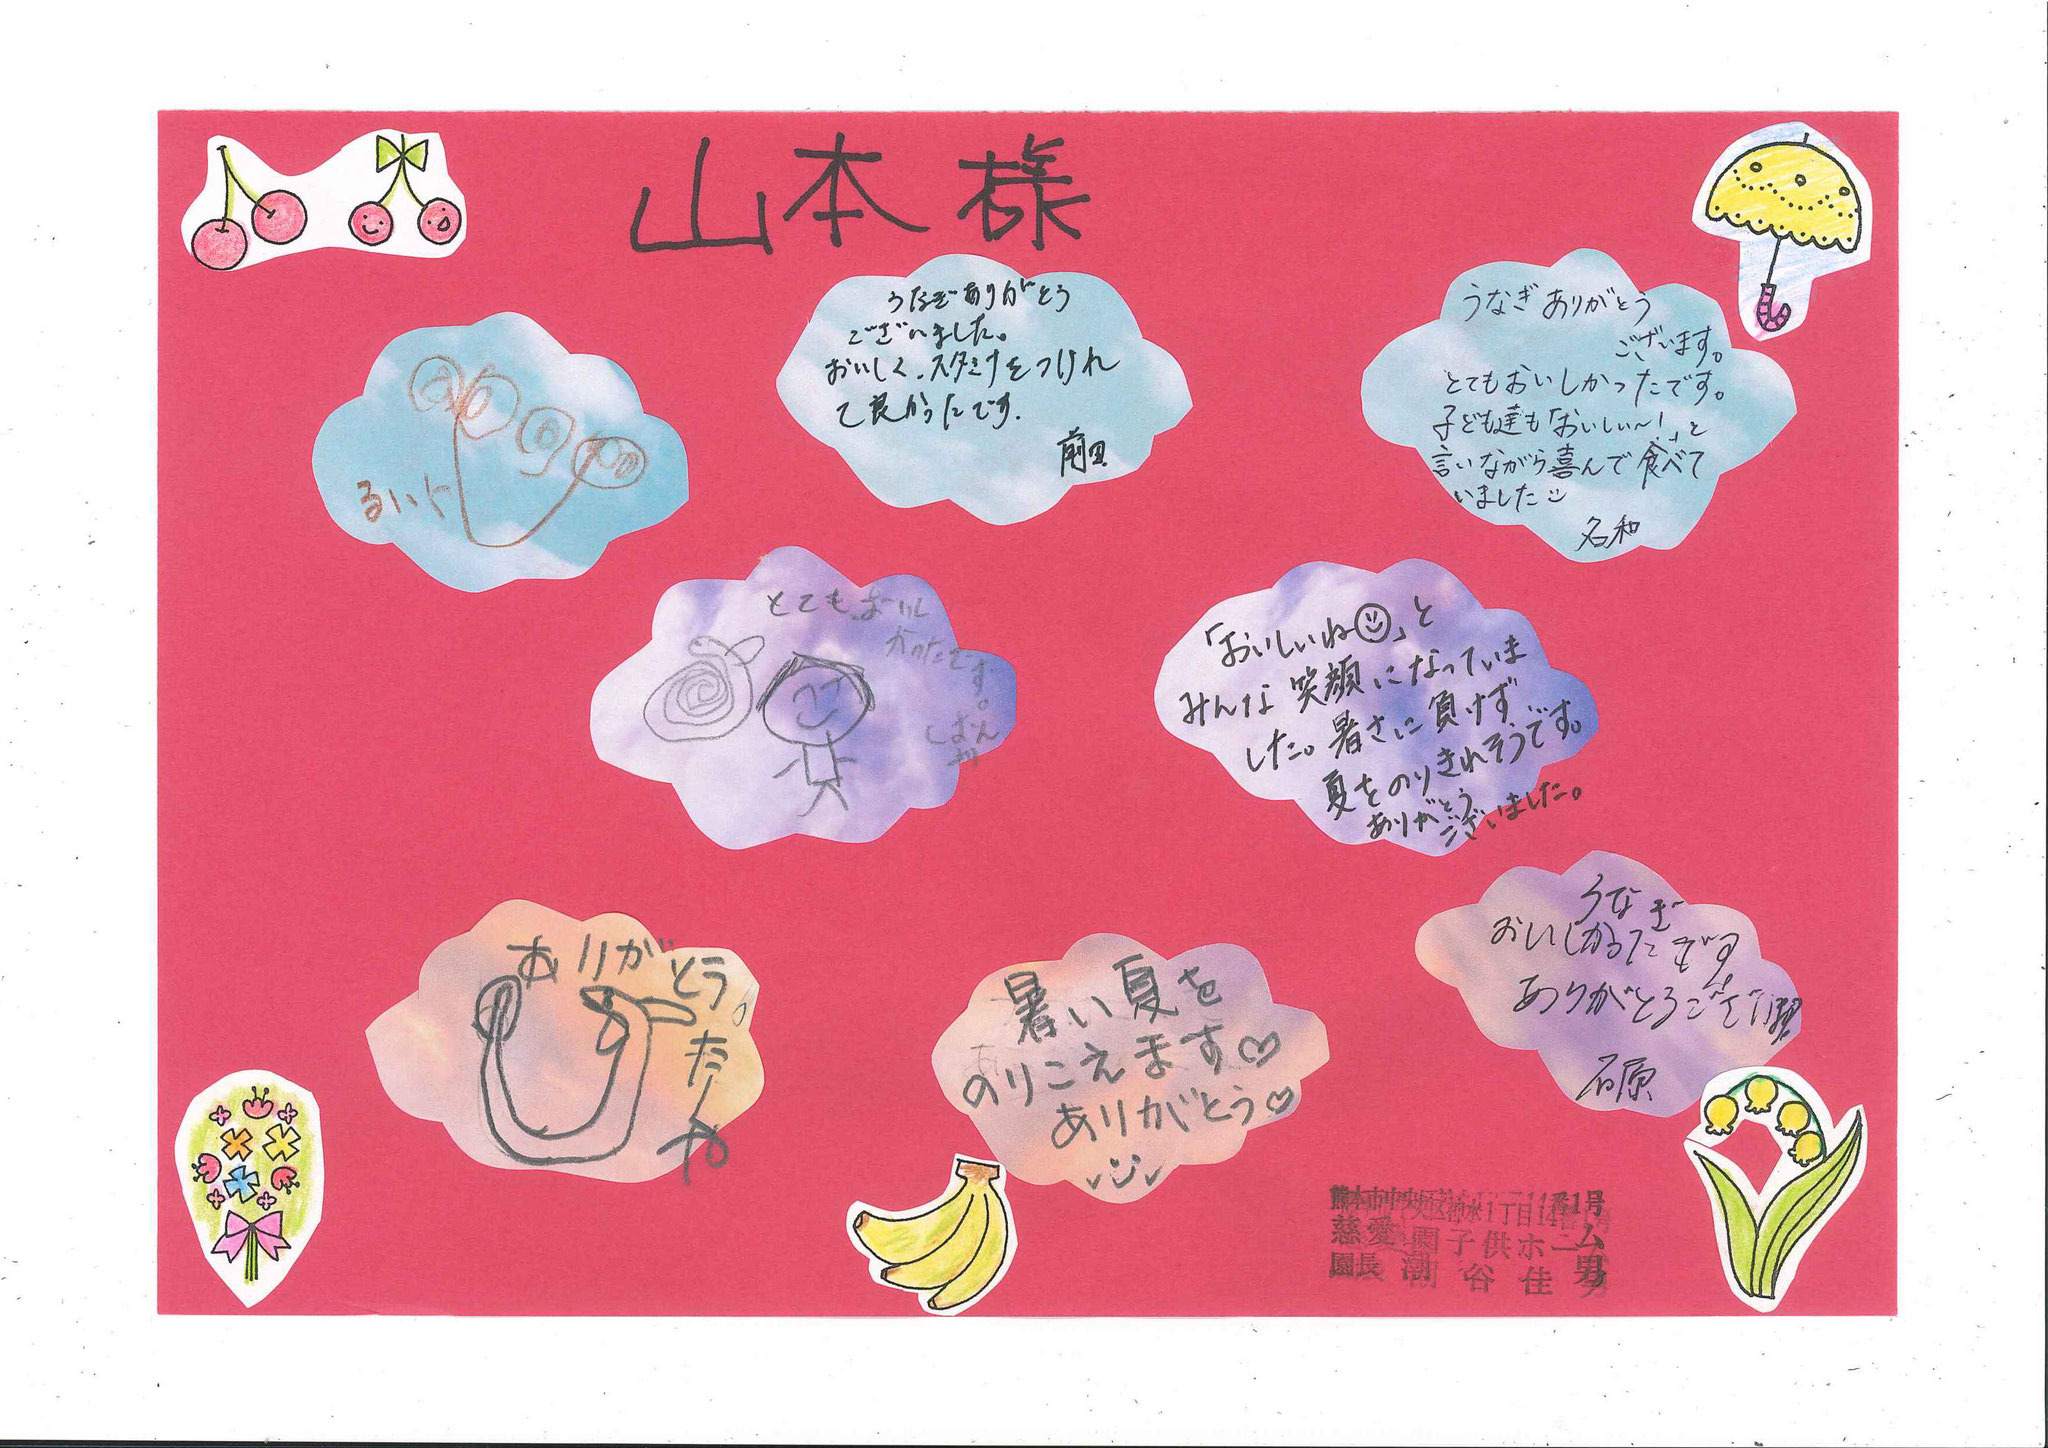 山本様
うなぎありがとう
ございました。
おいしく、スタミナをつけれ
て良かったです.
前田
うなぎありがとう
ございます。
とてもおいしかったです。
子ども達も「おいしい～!」と
言いながら喜んで食べて
いました
名和
るいと
とてもおいし
かったです。
「おいしいね」と
みんな笑顔になっていま
した。暑さに負けず
夏をのりきれそうです。
ありがとう
ございました。
ありがとう。
たくや
暑い夏を
のりこえます♡
ありがとう♡
うなぎ
おいしかったです
ありがとうござい
石原
熊本市中央区神水1丁目14番1号
慈愛園子供ホーム
園長 潮谷佳男